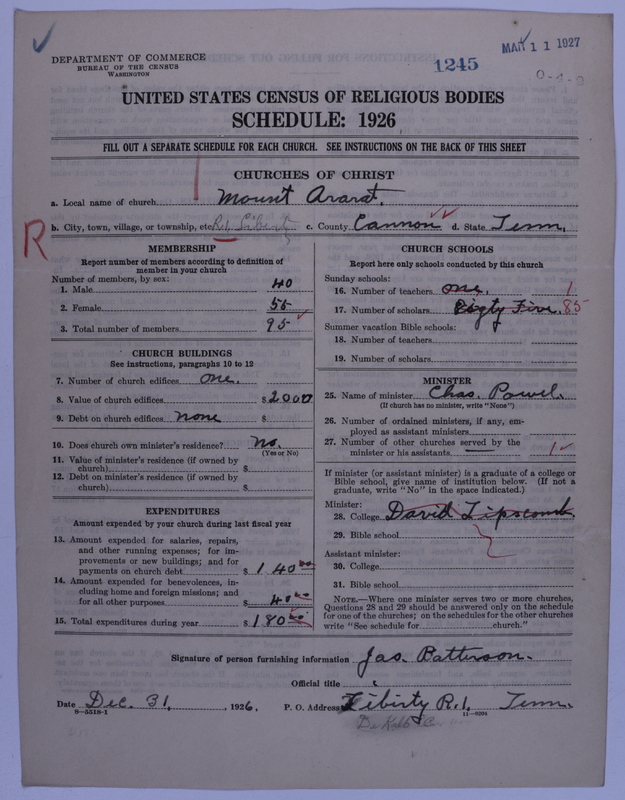 DEPARTMENT OF COMMERCE
BUREAU OF THE CENSUS
WASHINGTON
1245
MAR 11 1927
UNITED STATES CENSUS OF RELIGIOUS BODIES
SCHEDULE: 1926
FILL OUT A SEPARATE SCHEDULE FOR EACH CHURCH. SEE INSTRUCTIONS ON THE BACK OF THIS SHEET
CHURCHES OF CHRIST
a. Local name of church Mount Ararat.
R
b. City, town, village, or township, etc. R.1, Liberty c. County Cannon d. State Tenn.
MEMBERSHIP
Report number of members according to definition of
member in your church
Number of members, by sex:
1. Male 40
2. Female 55
3. Total number of members 95
CHURCH BUILDINGS
See instructions, paragraphs 10 to 12
7. Number of church edifices one.
8. Value of church edifices $2000
9. Debt on church edifices none $
10. Does church own minister's residence? no.
(Yes or No)
11. Value of minister's residence (if owned by
church) $
12. Debt on minister's residence (if owned by
church) $
EXPENDITURES
Amount expended by your church during last fiscal year
13. Amount expended for salaries, repairs,
and other running expenses; for im-
provements or new buildings; and for
payments on church debt $ 140 00
14. Amount expended for benevolences, in-
cluding home and foreign missions; and
for all other purposes 40 00
15. Total expenditures during year $ 180 00
CHURCH SCHOOLS
Report here only schools conducted by this church
Sunday schools:
16. Number of teachers one 1
17. Number of scholars Eigty Five 85
Summer vacation Bible schools:
18. Number of teachers
19. Number of scholars
MINISTER
25. Name of minister Chas. Powel.
(If church has no minister, write "None")
26. Number of ordained ministers, if any, em-
ployed as assistant ministers
27. Number of other churches served by the
minister or his assistants 1
If minister (or assistant minister) is a graduate of a college or
Bible school, give name of institution below. (If not a
graduate, write "No" in the space indicated.)
Minister:
28. College David Lipscomb.
29. Bible school
Assistant minister:
30. College
31. Bible school
NOTE.—Where one minister serves two or more churches,
Questions 28 and 29 should be answered only on the schedule
for one of the churches; on the schedules for the other churches
write "See schedule for church."
Signature of person furnishing information Jas. Patterson.
Official title
Date Dec. 31, , 1926. P. O. Address Liberty R.1, Tenn.
8-5518-1 11-9204
De Kalb Co